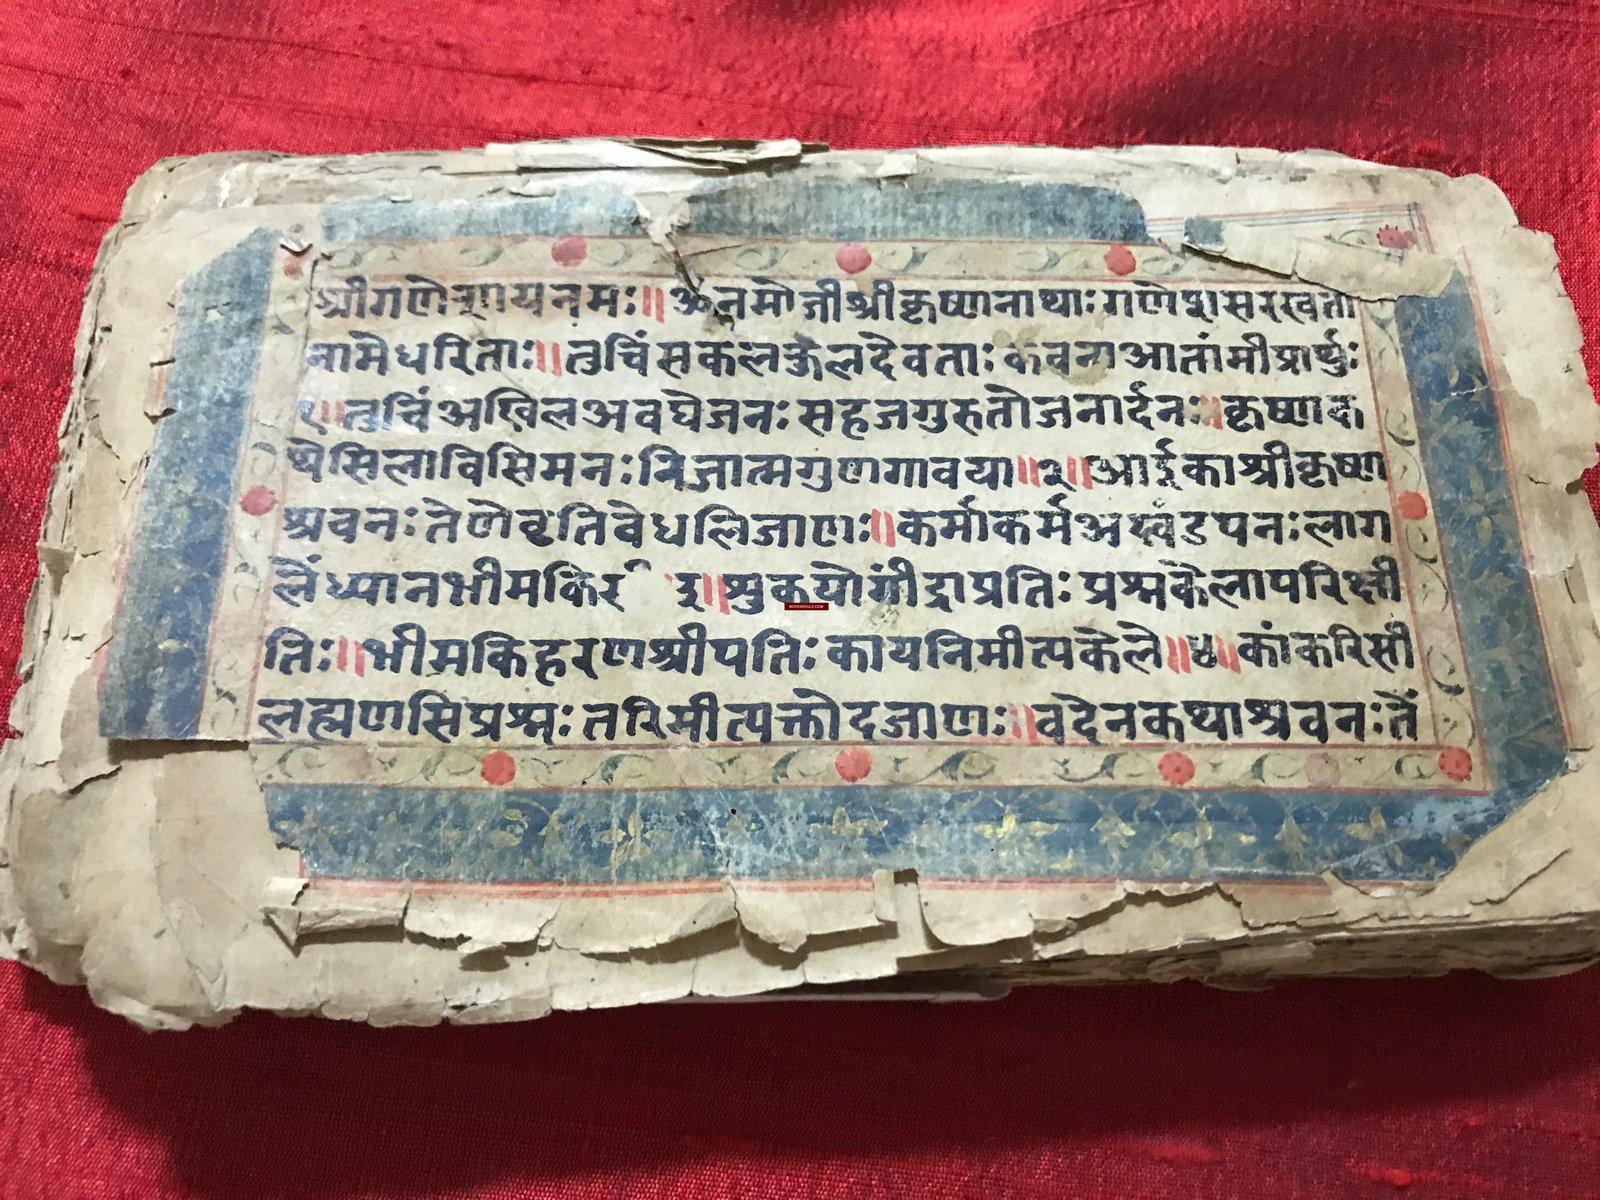 श्रीगणेशायनमः॥ॐनमोजीश्रीकृष्णनाथाः गणेशसरस्वती
नामेधरिताः॥तुचिंसकल देवताः आतांमीप्रार्थुः
१॥तुचिंअखिलअवघेजनः सहजगुरुतोजनार्दनः॥कृष्णक
थेसिलाविसिमनः निजात्मगुणगावया॥२॥आईकाश्रीकृष्ण
श्रवनः तेणेवृतिवेधलिजाणः॥कर्माकर्मअखंडपनः लाग
लेंध्यानभीमकि रु॥शुकयोगींद्राप्रतिः प्रश्नकेलापरिक्षी
तिः॥भीमकिहरणश्रीपतिः कायनिमीत्यकेले॥४॥कांकरिसी
लह्मणसिप्रश्नः तरिमीत्यक्तोदजाणः॥वदेनकथाश्रवनः तें
WOVENSOULS.COM